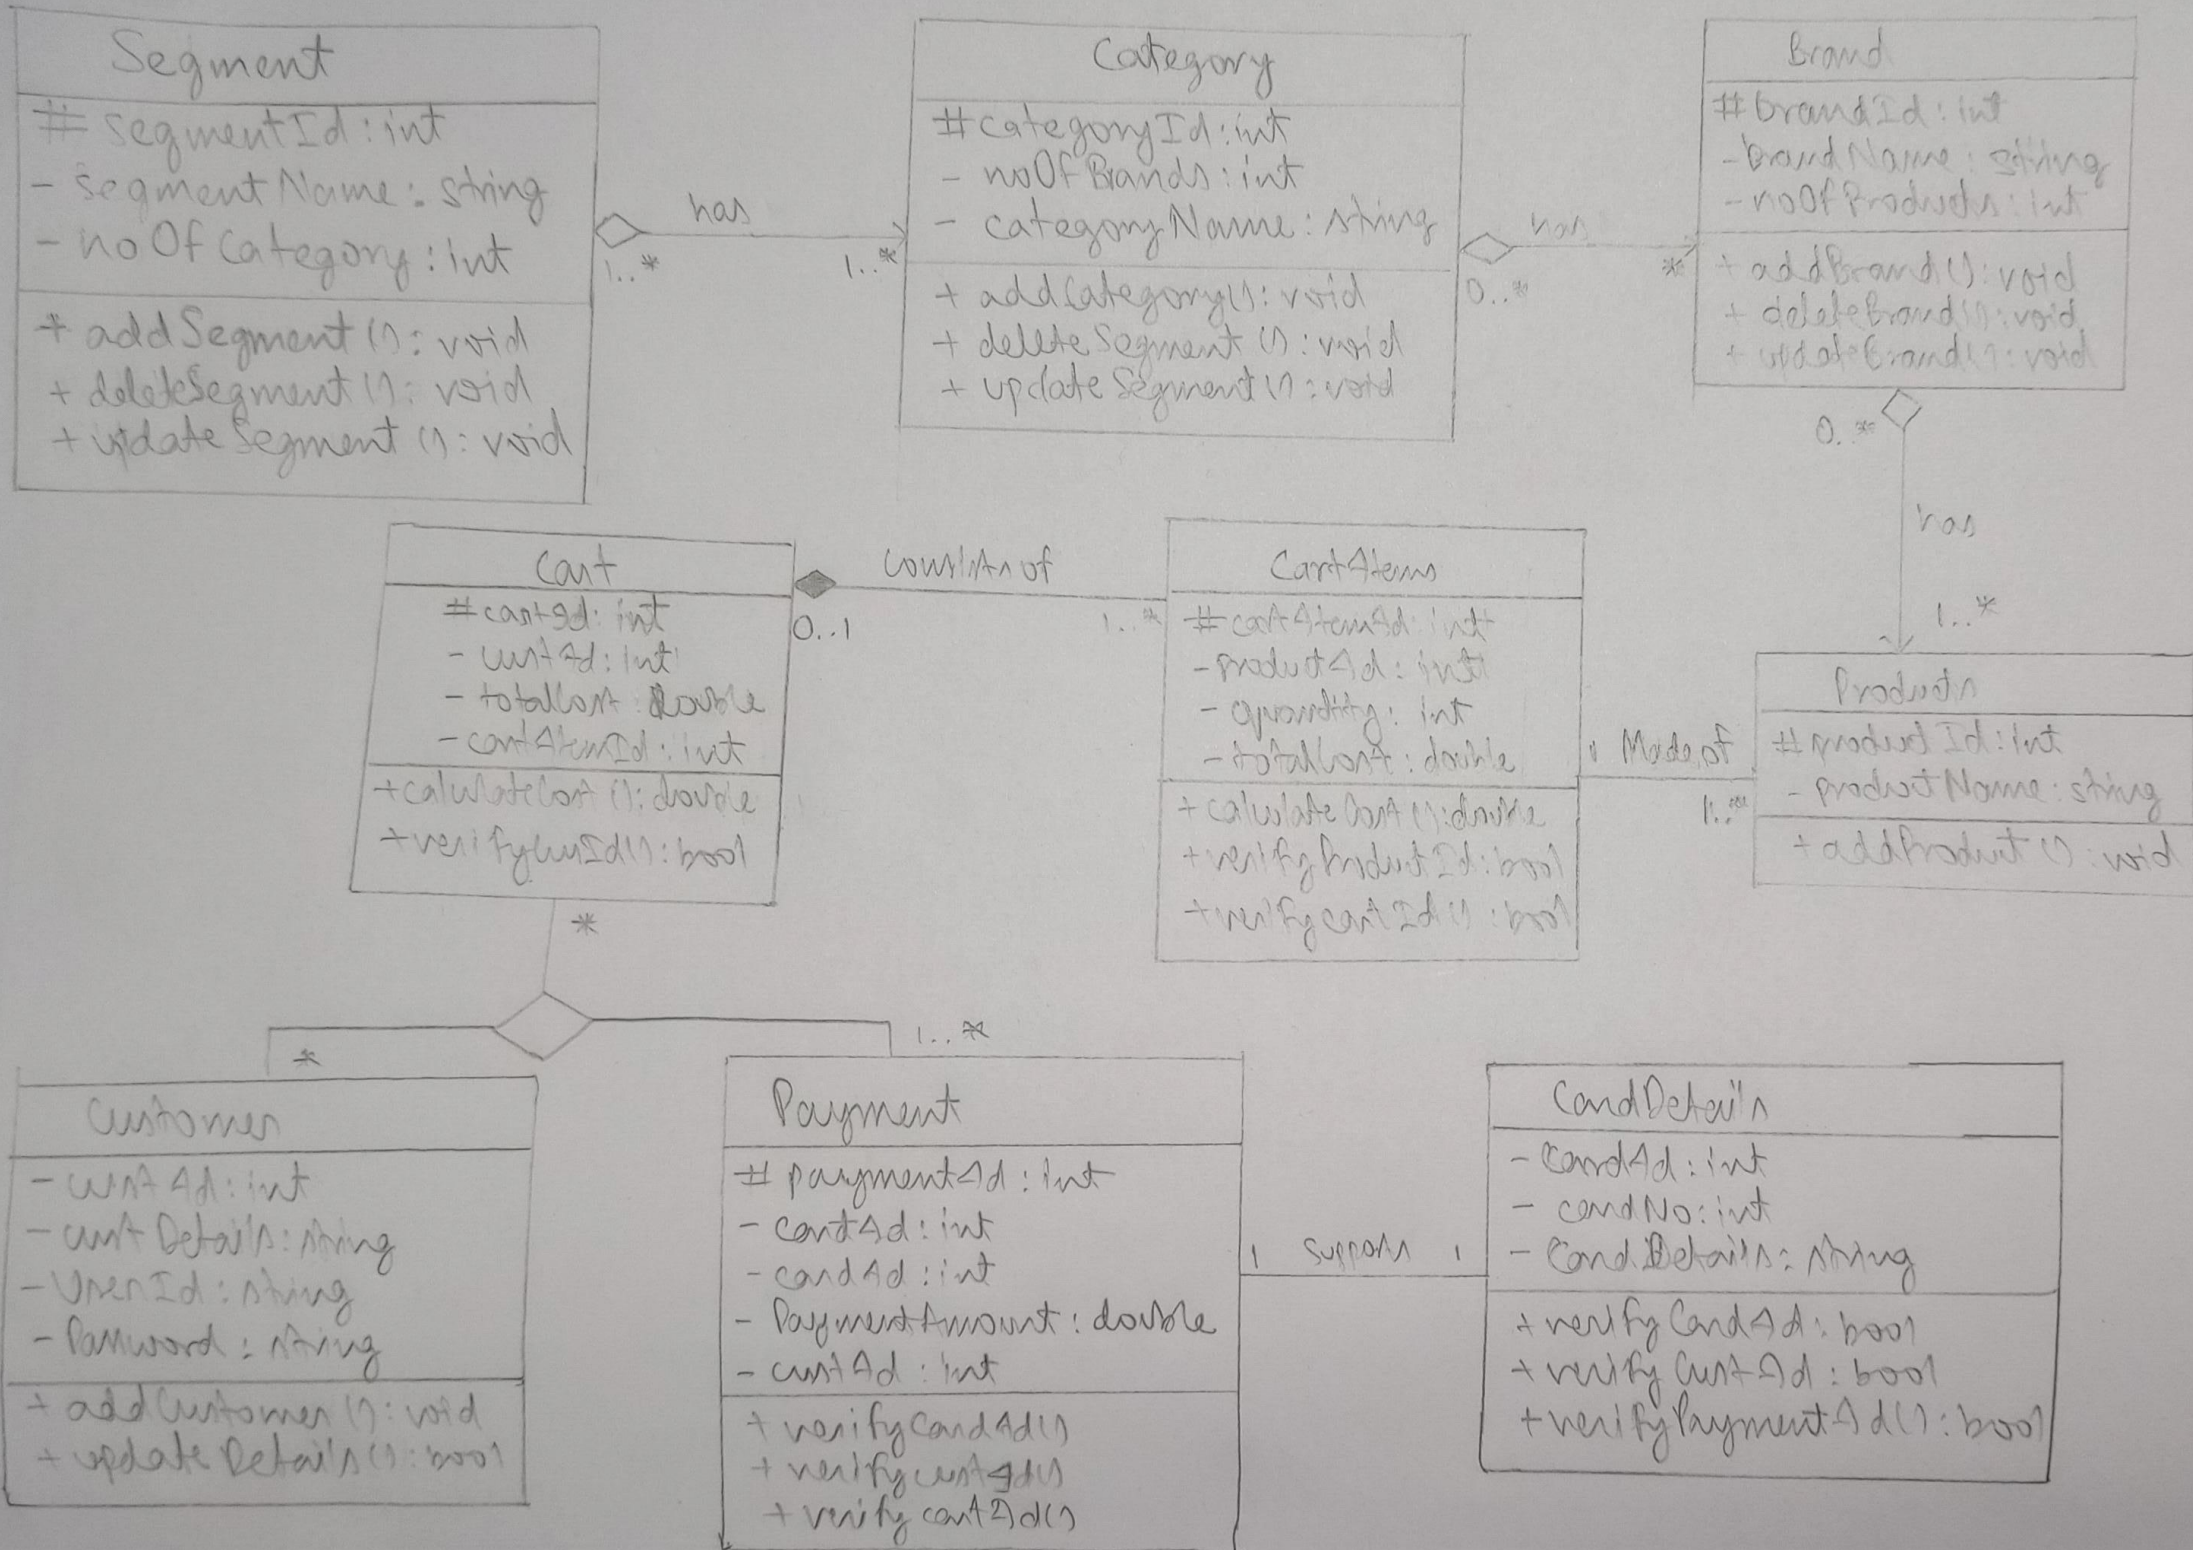 Segment
# segmentId : int
- segmentName : string
- noOfCategory : int
+ addSegment () : void
+ deleteSegment () : void
+ updateSegment () : void
has
1..*
1..*
Category
# categoryId : int
- noOfBrands : int
- categoryName : string
+ addCategory() : void
+ deleteSegment () : void
+ updateSegment () : void
has
0..*
*
Brand
# brandId : int
- brandName : string
- noOfProducts : int
+ addBrand() : void
+ deleteBrand() : void
+ updateBrand() : void
0..*
has
1..*
Cart
# cartId : int
- custId : int
- totalCost : double
- cartItemId : int
+ calculateCost () : double
+ verifyCusId() : bool
consists of
0..1
1..*
CartItems
# cartItemId : int
- productId : int
- quantity : int
- totalCost : double
+ calculateCost () : double
+ verifyProductId : bool
+ verifycartId() : bool
1 Made of
1..*
Products
# productId : int
- productName : string
+ addProduct () : void
*
*
1..*
Customer
- custId : int
- custDetails : string
- UserId : string
- Password : string
+ addCustomer () : void
+ updateDetails () : bool
Payment
# paymentId : int
- cartId : int
- cardId : int
- PaymentAmount : double
- custId : int
+ verifyCardId()
+ verifycustId()
+ verifycartId()
1 1
CardDetails
- CardId : int
- cardNo : int
- CardDetails : string
+ verifyCardId : bool
+ verifyCustId : bool
+ verifyPaymentId() : bool